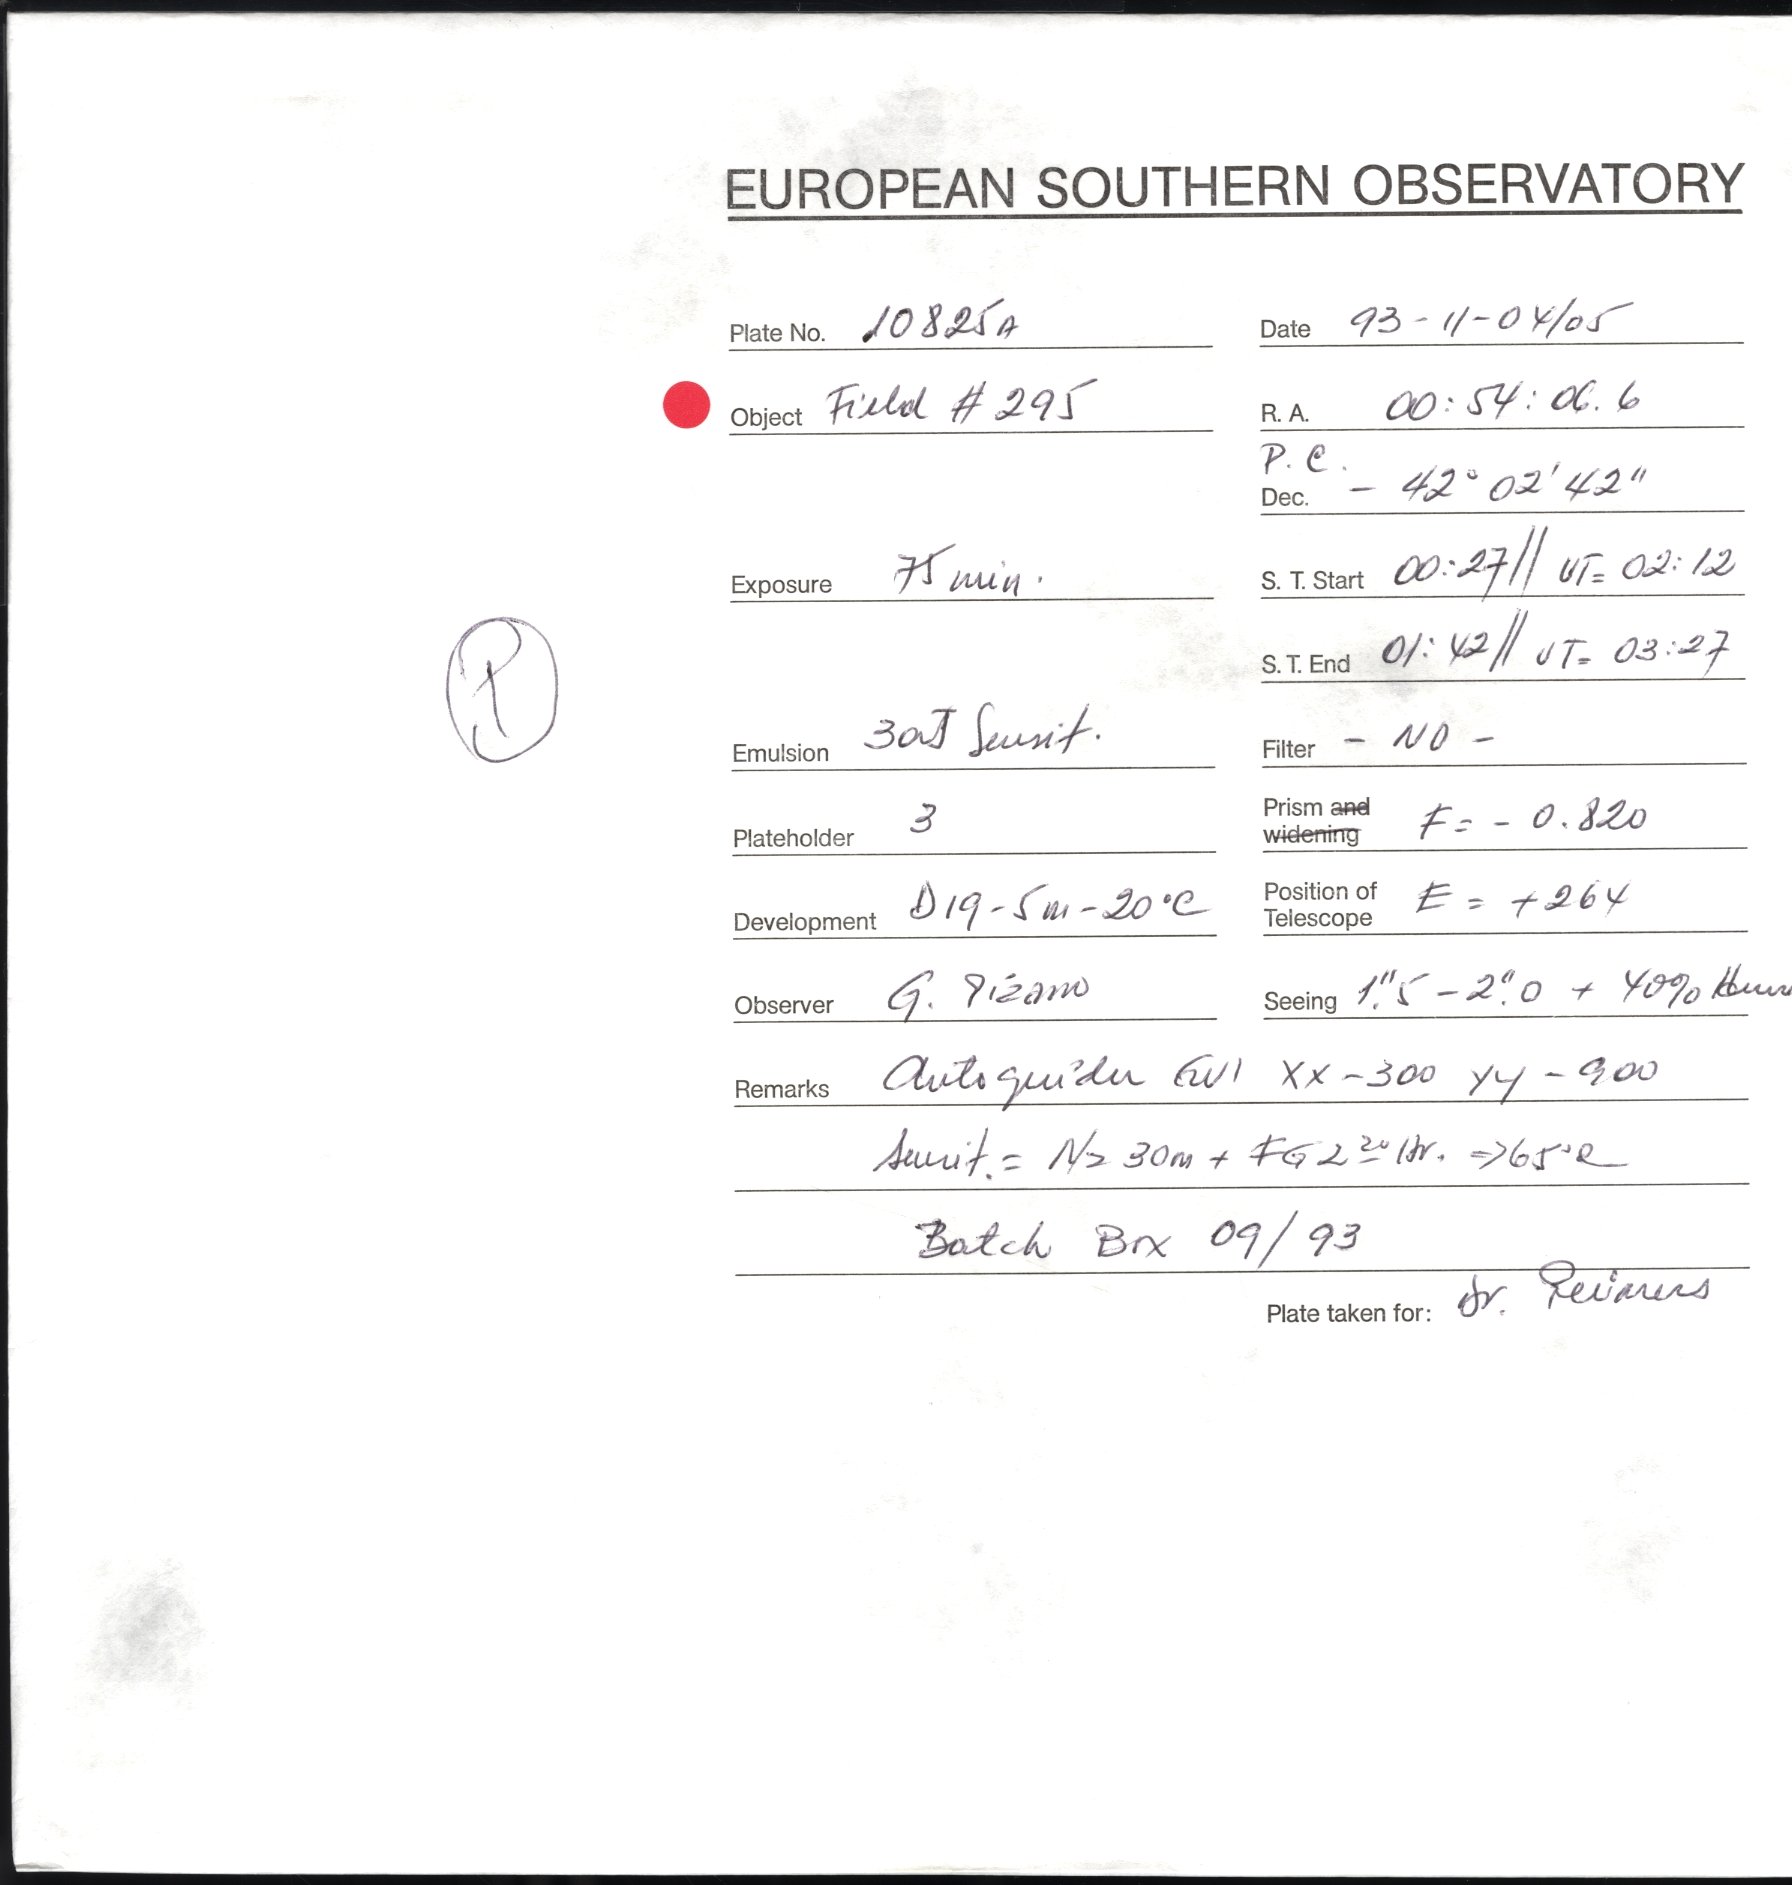 EUROPEAN SOUTHERN OBSERVATORY
Plate No. 10825A Date 93-11-04/05
Object Field # 295 R. A. 00:54:06.6
P. C.
Dec. - 42° 02' 42"
Exposure 75 min. S. T. Start 00:27// UT= 02:12
S. T. End 01:42// UT= 03:27
P
Emulsion 3aJ Sensit. Filter - NO -
Plateholder 3 Prism and widening F= - 0.820
Development D19-5m-20°C Position of Telescope E = +264
Observer G. Pizarro Seeing 1".5 - 2".0 + 40%
Remarks Autoguider XX-300 YY-900
Sensit. = N2 30m + FG 2 Hr. =>65°C
Batch Box 09/93
Plate taken for: Dr. Reimers